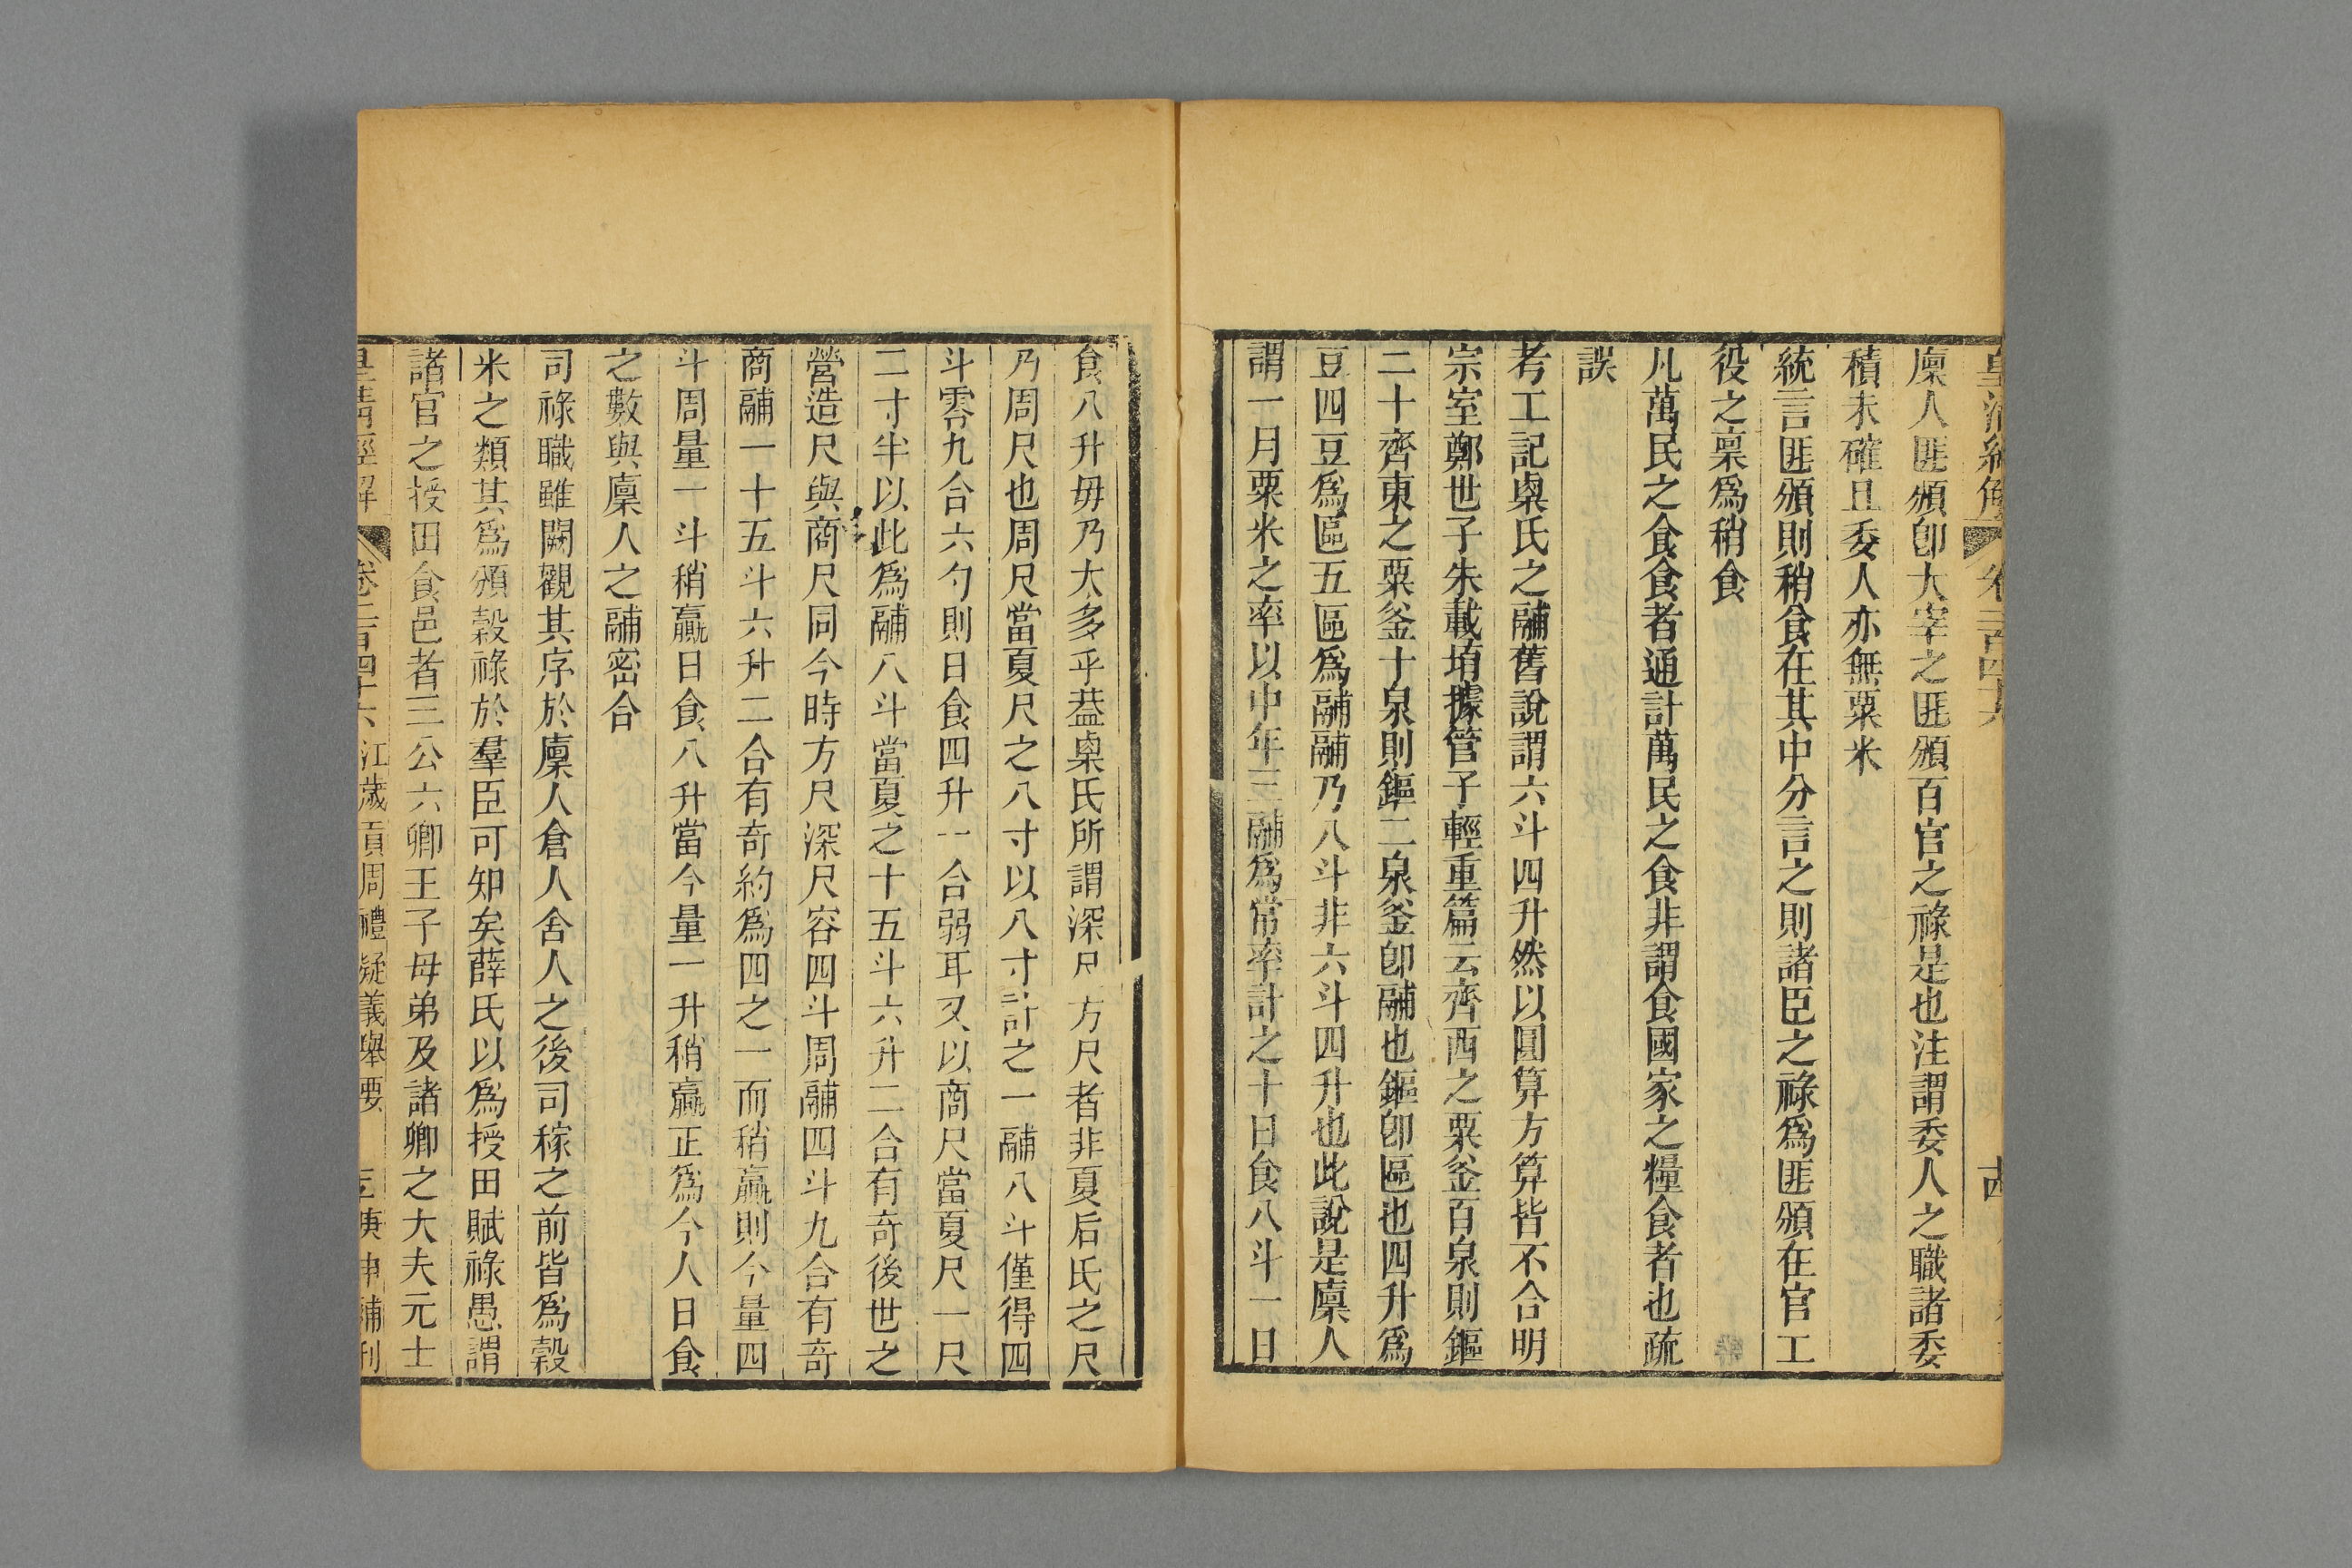 皇清經解 卷二百四十六
廩人匪頒卽大宰之匪頒百官之祿是也注謂委人之職諸委
積未確且委人亦無粟米
統言匪頒則稍食在其中分言之則諸臣之祿爲匪頒在官工
役之稟爲稍食
凡萬民之食食者通計萬民之食非謂食國家之糧食者也疏
誤
考工記㮚氏之鬴舊說謂六斗四升然以圓算方算皆不合明
宗室鄭世子朱載堉據管子輕重篇云齊西之粟釜百泉則鏂
二十齊東之粟釜十泉則鏂二泉釜卽鬴也鏂卽區也四升爲
豆四豆爲區五區爲鬴鬴乃八斗非六斗四升也此說是廩人
謂一月粟米之率以中年三鬴爲常率計之十日食八斗一日
食八升毋乃太多乎葢㮚氏所謂深尺方尺者非夏后氏之尺
乃周尺也周尺當夏尺之八寸以八寸計之一鬴八斗僅得四
斗零九合六勺則日食四升一合弱耳又以商尺當夏尺一尺
二寸半以此爲鬴八斗當夏之十五斗六升二合有奇後世之
營造尺與商尺同今時方尺深尺容四斗周鬴四斗九合有奇
商鬴一十五斗六升二合有奇約爲四之一而稍贏則今量四
斗周量一斗稍贏日食八升當今量一升稍贏正爲今人日食
之數與廩人之鬴密合
司祿職雖闕觀其序於廩人倉人舍人之後司稼之前皆爲穀
米之類其爲頒穀祿於羣臣可知矣薛氏以爲授田賦祿愚謂
諸官之授田食邑者三公六卿王子母弟及諸卿之大夫元士
皇清經解 卷二百四十六 江歲貢周禮疑義舉要 庚申補刊